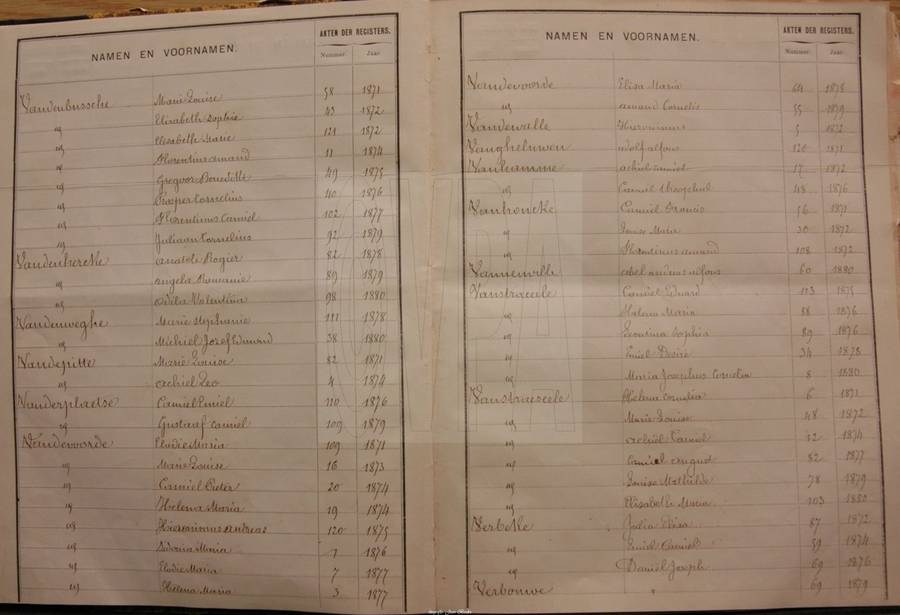 NAMEN EN VOORNAMEN.
AKTEN DER REGISTERS.
Nummer Jaar
Vandenbussche Marie Louise 58 1871
id Elisabeth Sophie 43 1872
id Elisabeth Marie 121 1872
id Florentinus Amand 11 1874
id Gregoor Benedikt 49 1875
id Prosper Cornelius 40 1876
id Florentinus Camiel 102 1877
id Juliaan Cornelius 92 1879
Vandenkercke Anatole Rogier 82 1878
id Angela Romanie 89 1879
id Odila Valentina 98 1880
Vandenweghe Marie Stephanie 111 1878
id Michiel Jozef Edmond 38 1880
Vandepitte Marie Louise 82 1871
id Achiel Leo 4 1874
Vanderplaetse Camiel Emiel 110 1876
id Gustaaf Camiel 109 1879
Vandevoorde Elodie Maria 109 1871
id Marie Louise 16 1873
id Camiel Pieter 20 1874
id Helena Maria 19 1874
id Hieronimus Andreas 120 1875
id Sidonia Maria 7 1876
id Elodie Maria 7 1877
id Helena Maria 3 1877
NAMEN EN VOORNAMEN.
AKTEN DER REGISTERS.
Nummer Jaar
Vandevoorde Elisa Maria 64 1878
id Amand Cornelis 55 1879
Vandewalle Hieronimus 5 1872
Vangheluwen Adolf Alfons 120 1871
Vanhamme Achiel Camiel 17 1872
id Camiel Theophiel 48 1876
Vanhoncke Camiel Francis 56 1871
id Louise Maria 30 1872
id Florentinus Amand 108 1872
Vannewille Abel Alfons 60 1880
Vanstraceele Camiel Eduard 113 1875
id Helena Maria 88 1876
id Leontina Sophia 89 1876
id Emiel Desiré 34 1878
id Maria Josephus Cornelia 8 1880
Vanstraeseele Helena Cornelia 6 1871
id Marie Louise 48 1872
id Achiel Camiel 12 1874
id Camiel August 82 1877
id Louise Mathilde 78 1879
id Elisabeth Maria 103 1880
Verbeke Julia Elisa 87 1872
id Emiel Camiel 59 1874
id Daniel Joseph 69 1876
Verbouwe 69 1879